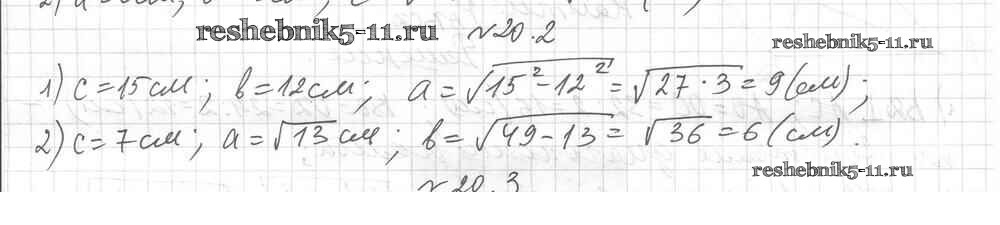 reshebnik5-11.ru №20.2
reshebnik5-11.ru
1) c=15см; в=12см; a=√15²-12²=√27·3=9(см);
2) c=7см; a=√13см; в=√49-13=√36=6(см).
reshebnik5-11.ru
№20.3